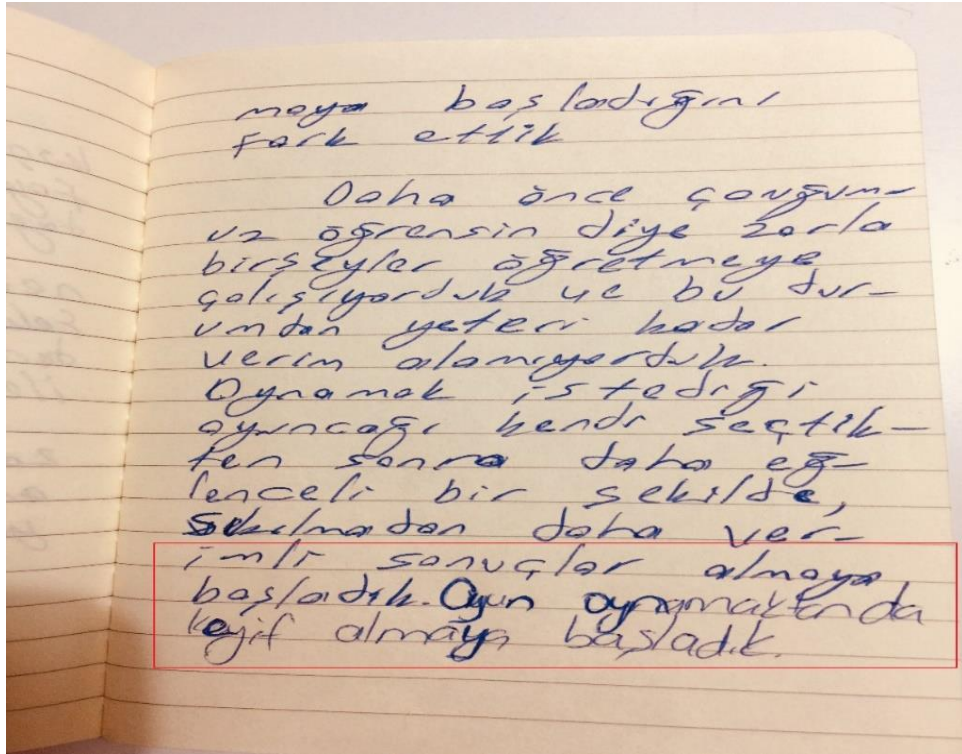 maya başladığını
fark ettik
Daha önce çouğum-
uz öğrensin diye zorla
birşeyler öğretmeye
çalışıyorduk ve bu dur-
umdan yeteri kadar
verim alamıyorduk.
Oynamak istediği
oyuncağı kendi seçtik-
ten sonra daha eğ-
lenceli bir şekilde,
sıkılmadan daha ver-
imli sonuçlar almaya
başladık. Oyun oynamaktanda
keyif almaya başladık.